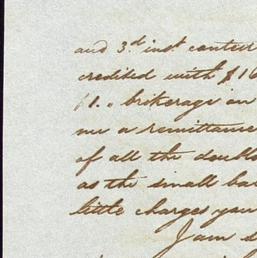 and 3d inst conten
credited with $16
$1.. brikerage on
me a remittance
of all the doubl
as the small ba
little charges you
I am s